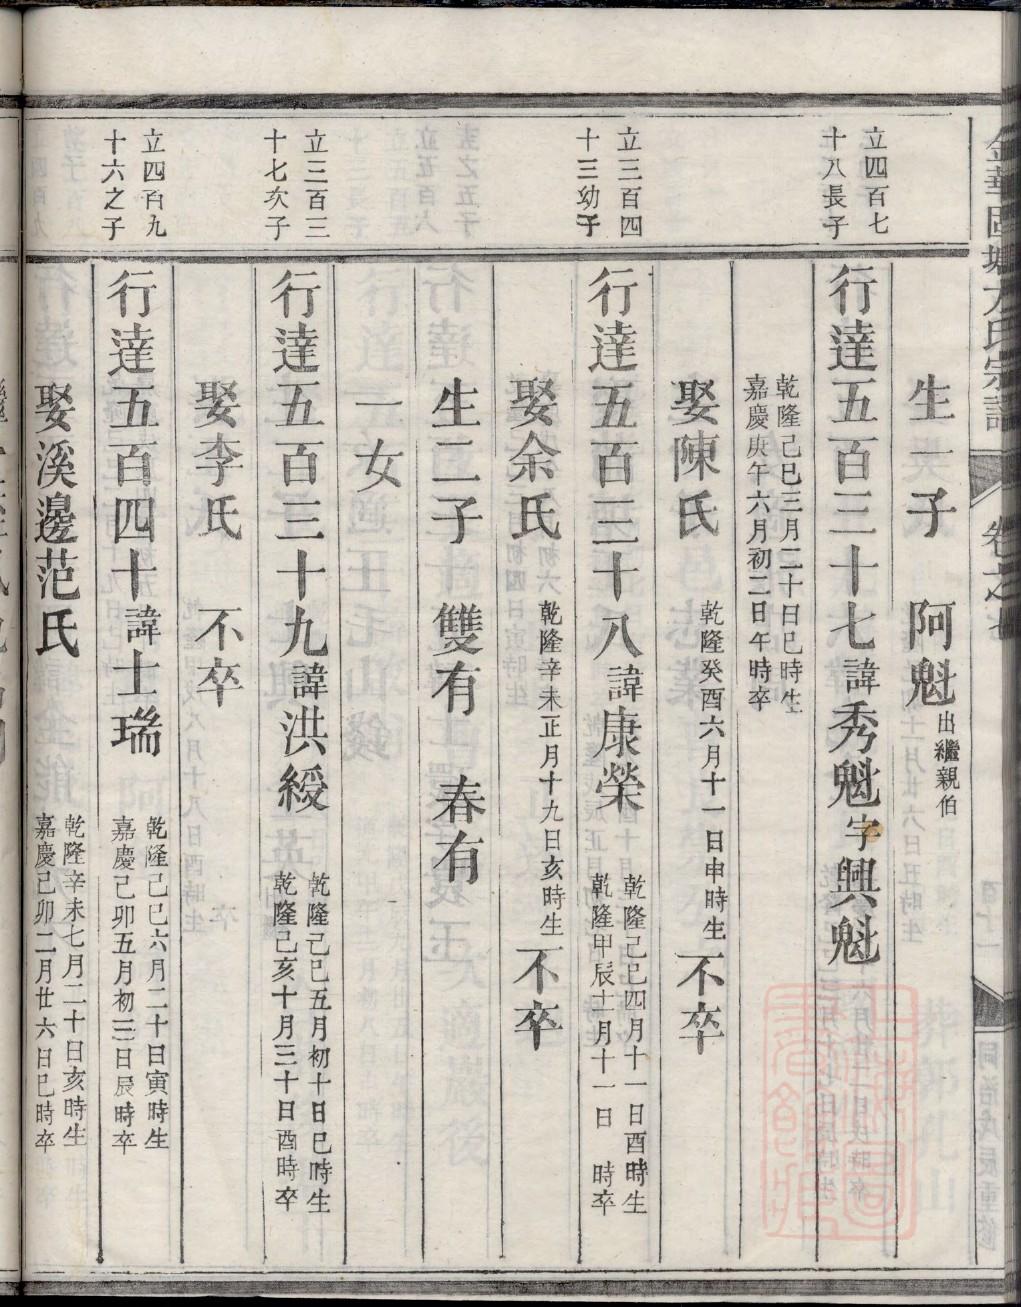 生一子　阿魁出繼親伯
立四百七
十八長子
行達五百三十七諱秀魁字興魁
乾隆己巳三月二十日巳時生
嘉慶庚午六月初二日午時卒
娶陳氏　乾隆癸酉六月十一日申時生　不卒
立三百四
十三幼子
行達五百三十八諱康榮
乾隆己巳四月十一日酉時生
乾隆甲辰十一月十一日　時卒
娶余氏　乾隆辛未正月十九日亥時生　不卒
生二子　雙有　春有
一女
立三百三
十七次子
行達五百三十九諱洪綬
乾隆己巳五月初十日巳時生
乾隆己亥十月三十日酉時卒
娶李氏　不卒
立四百九
十六之子
行達五百四十諱士瑞
乾隆己巳六月二十日寅時生
嘉慶己卯五月初三日辰時卒
娶溪邊范氏
乾隆辛未七月二十日亥時生
嘉慶己卯二月廿六日巳時卒